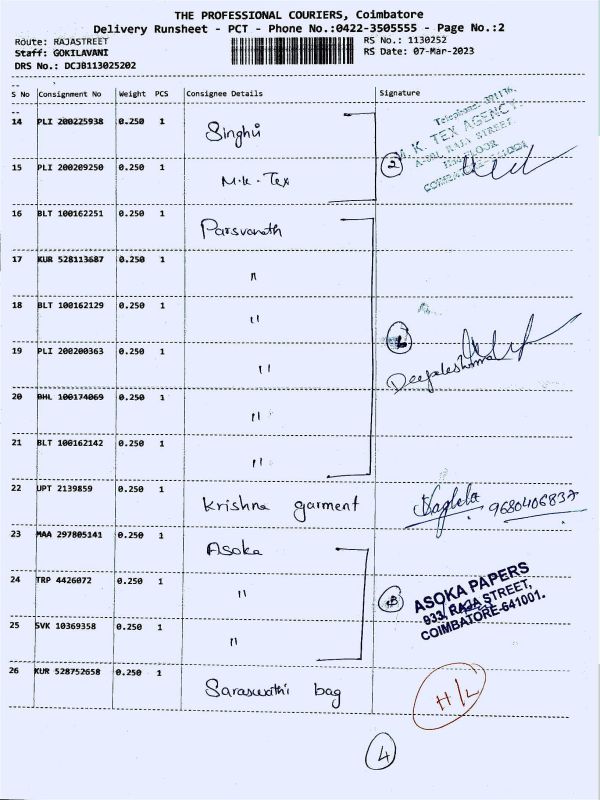 THE PROFESSIONAL COURIERS, Coimbatore
Delivery Runsheet - PCT - Phone No.:0422-3505555 - Page No.:2
Route: RAJASTREET
RS No.: 1130252
Staff: GOKILAVANI
RS Date: 07-Mar-2023
DRS No.: DCJB113025202
S No Consignment No Weight PCS Consignee Details Signature
14 PLI 200225938 0.250 1 Singhvi
M.K. TEX AGENCY.
RAJA STREET
15 PLI 200209250 0.250 1 M.K. Tex
2
16 BLT 100162251 0.250 1 Parsvanath
17 KUR 528113687 0.250 1 "
18 BLT 100162129 0.250 1 "
19 PLI 200200363 0.250 1 "
20 BHL 100174069 0.250 1 "
21 BLT 100162142 0.250 1 "
22 UPT 2139859 0.250 1 Krishna garment 9680406837
23 MAA 297805141 0.250 1 Asoka
24 TRP 4426072 0.250 1 "
ASOKA PAPERS
933, RAJA STREET,
COIMBATORE-641001.
25 SVK 10369358 0.250 1 "
26 KUR 528752658 0.250 1 Saraswathi bag H/L
4